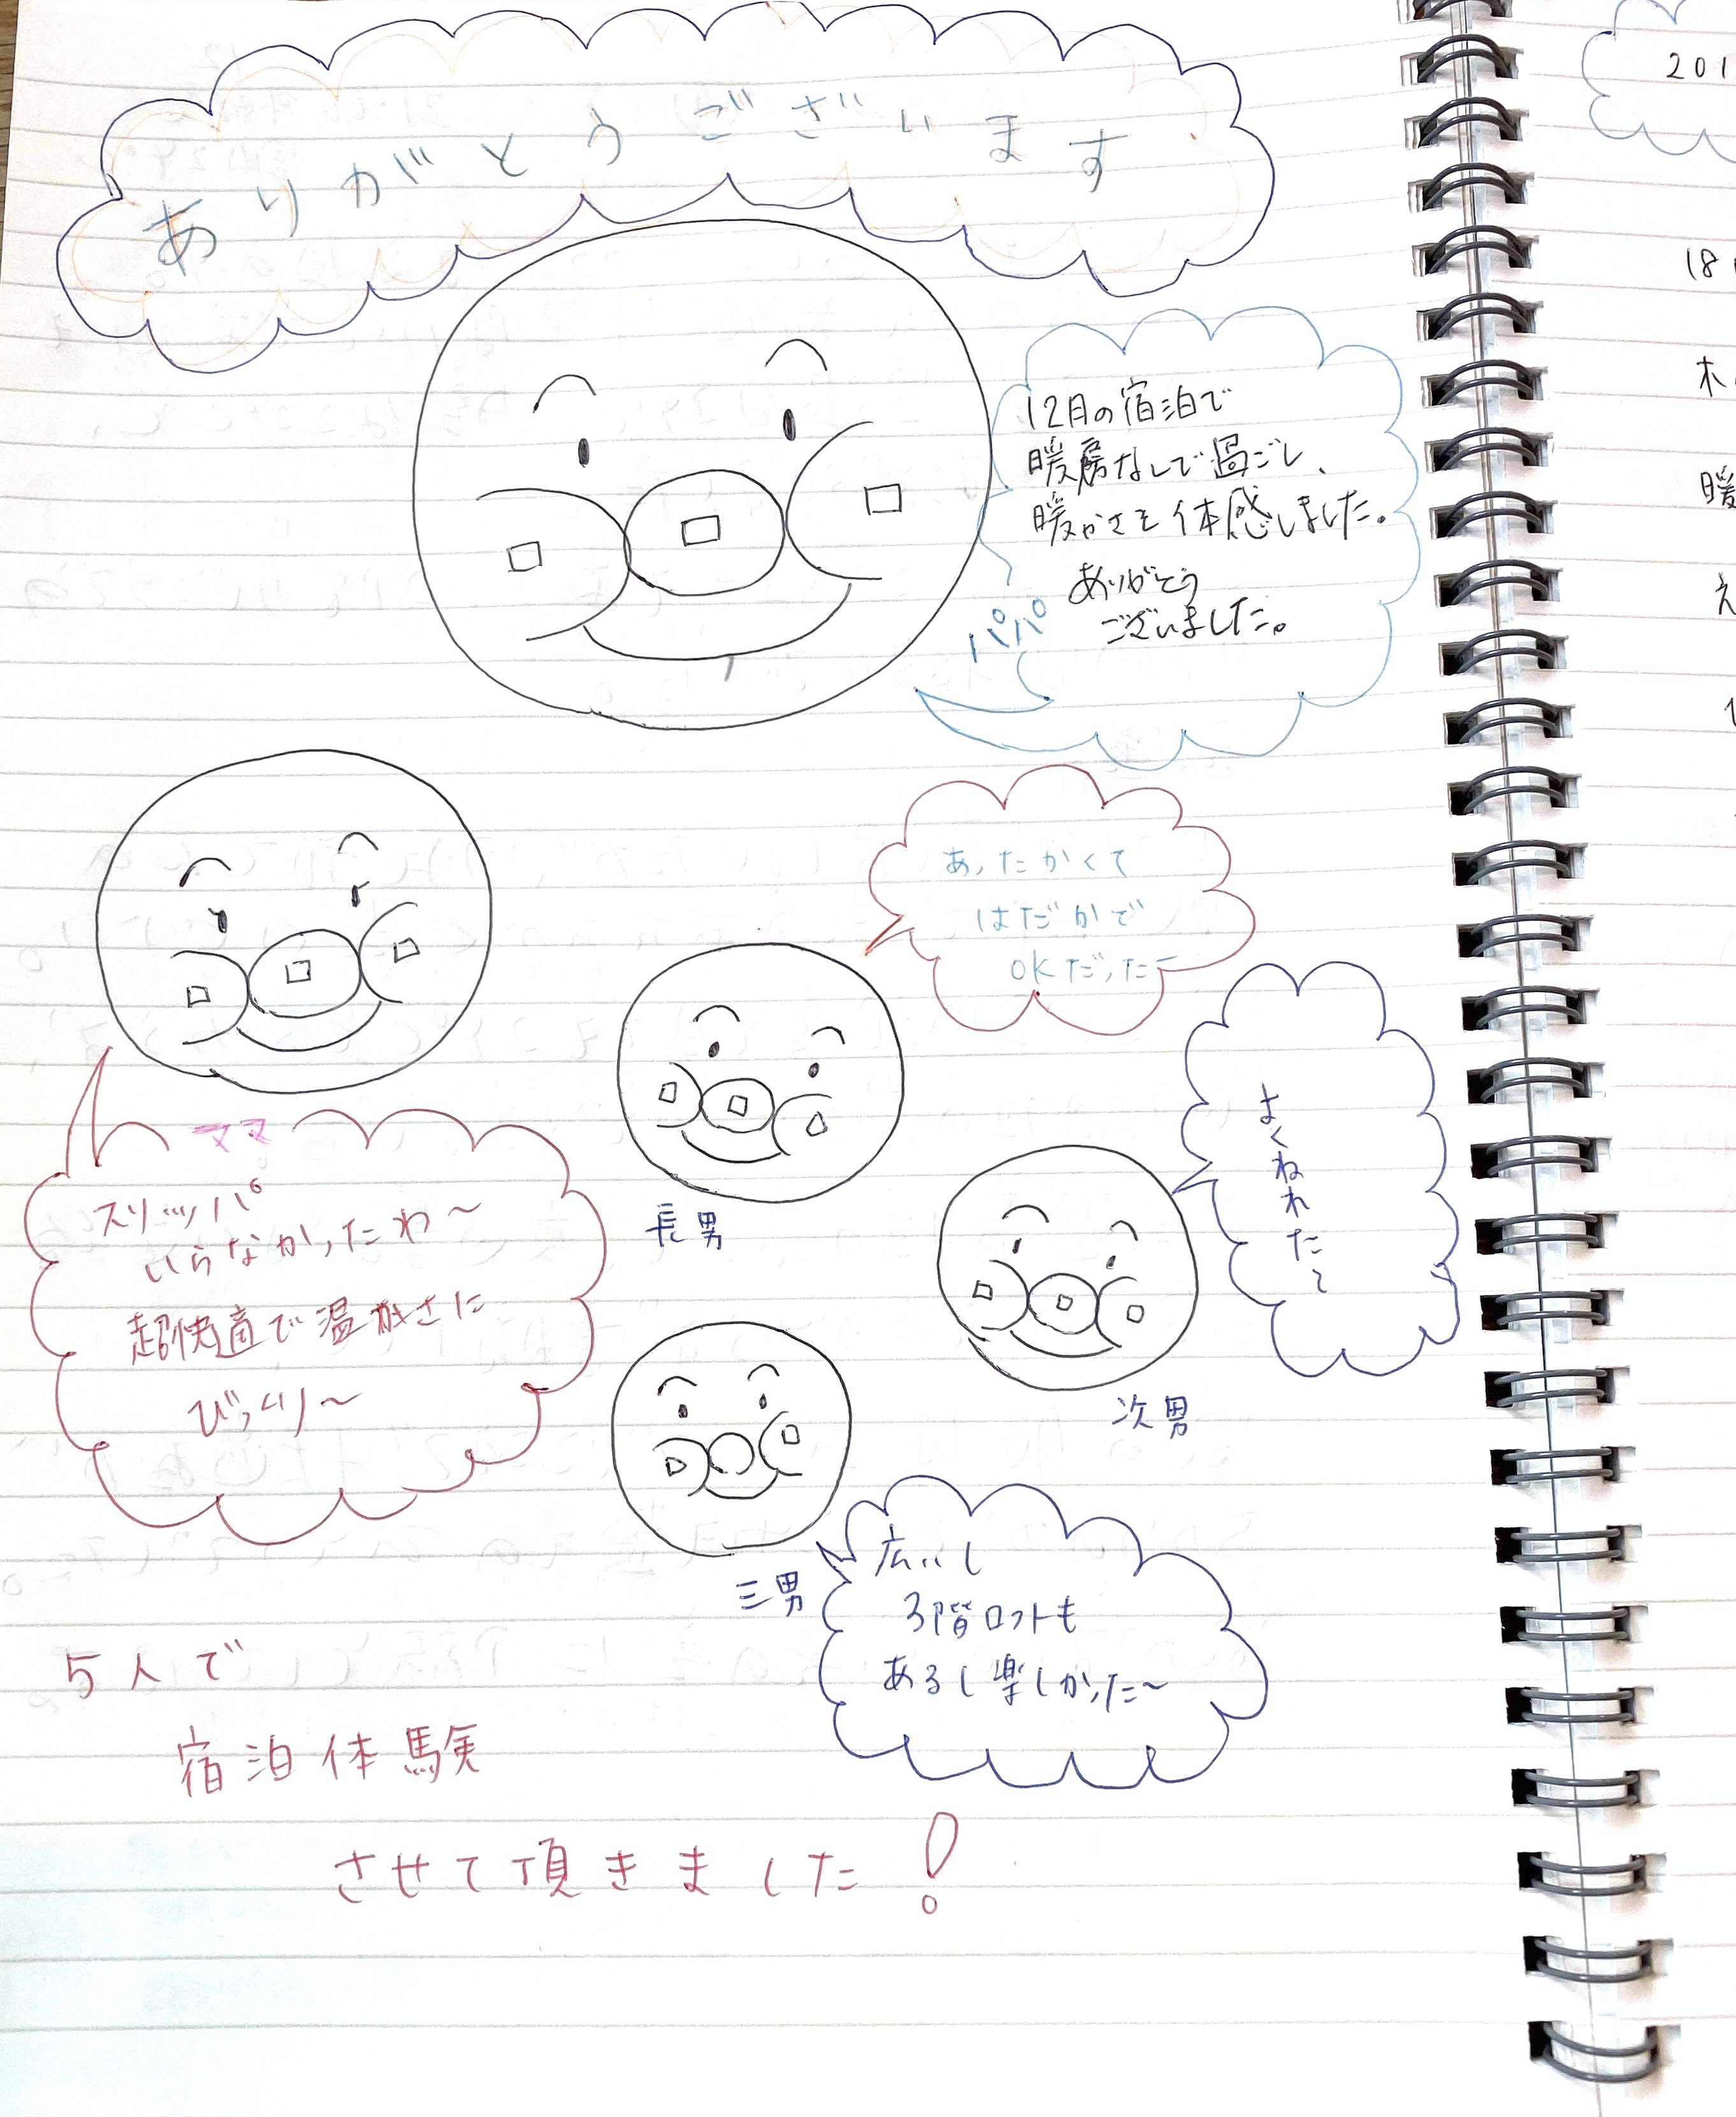 ありがとうございます
12月の宿泊で
暖房なしで過ごし、
暖かさを体感しました。
ありがとう
ございました。
パパ
あったかくて
はだかで
OKだったー
長男
よくねれたて
次男
ママ
スリッパ
いらなかったわ〜
超快適で温かさに
びっくり〜
広いし
3階ロフトも
あるし楽しかった〜
三男
5人で
宿泊体験
させて頂きました!
201
18
木
暖
え